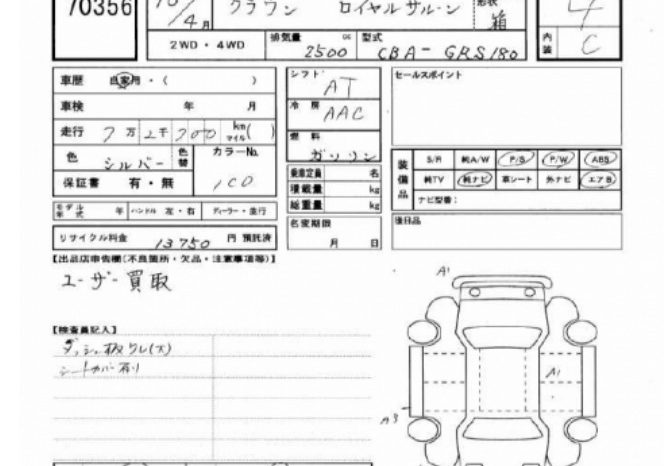 70356
クラウン ロイヤルサルーン 形状 箱 4
4月
2WD・4WD 排気量 cc 2500 型式 CBA-GRS180 内装 C
車歴 自家用・( )
車検 年 月
走行 7万2千200km マイル( )
色 シルバー 色替 カラーNo. 1C0
保証書 有・無
モデル年式 年 ハンドル 左・右 ディーラー・並行
リサイクル料金 13750 円 預託済
シフト AT
冷房 AAC
燃料 ガソリン
乗車定員 名
積載量 kg
総重量 kg
名変期限 月 日
セールスポイント
装備品 S/R 純A/W P/S P/W ABS
純TV 純ナビ 革シート 外ナビ エアB
ナビ型番:
後日品
【出品店申告欄(不良箇所・欠品・注意事項等)】
ユーザー買取
【検査員記入】
ダッシュ板ワレ(大)
シートカバー有り
A1
A1
A3